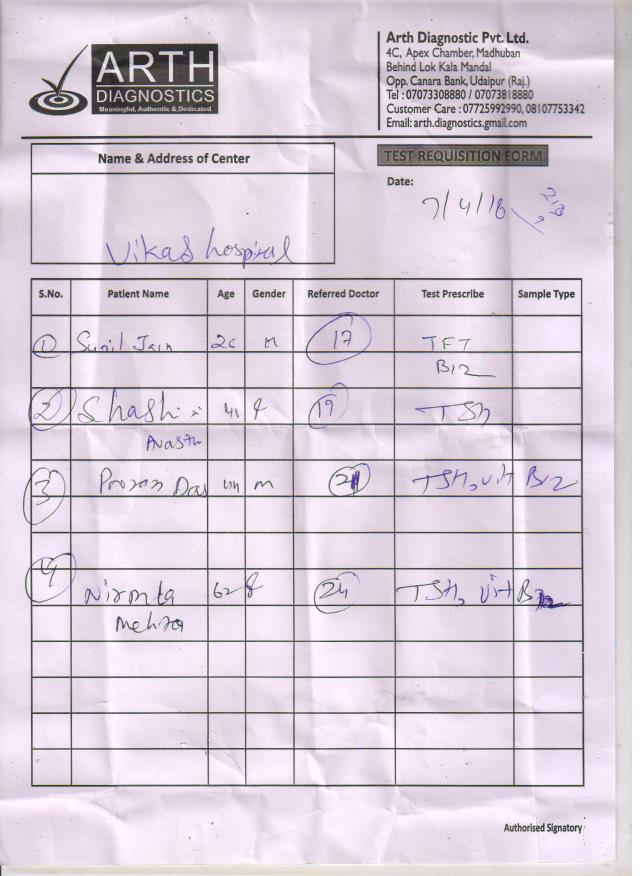 ARTH
DIAGNOSTICS
Meaningful, Authentic & Dedicated
Arth Diagnostic Pvt. Ltd.
4C, Apex Chamber, Madhuban
Behind Lok Kala Mandal
Opp. Canara Bank, Udaipur (Raj.)
Tel : 07073308880 / 07073818880
Customer Care : 07725992990, 08107753342
Email: arth.diagnostics.gmail.com
Name & Address of Center
TEST REQUISITION FORM
Date:
7/4/16
Vikas hospital
S.No. Patient Name Age Gender Referred Doctor Test Prescribe Sample Type
1 Sunil Jain m 17 TFT
B12
2 Shashi 40 f 19 TSH
3 Das m 21 TSH, Vit B12
4 Nirmla 62 f 24 TSH, Vit B12
Mehra
Authorised Signatory